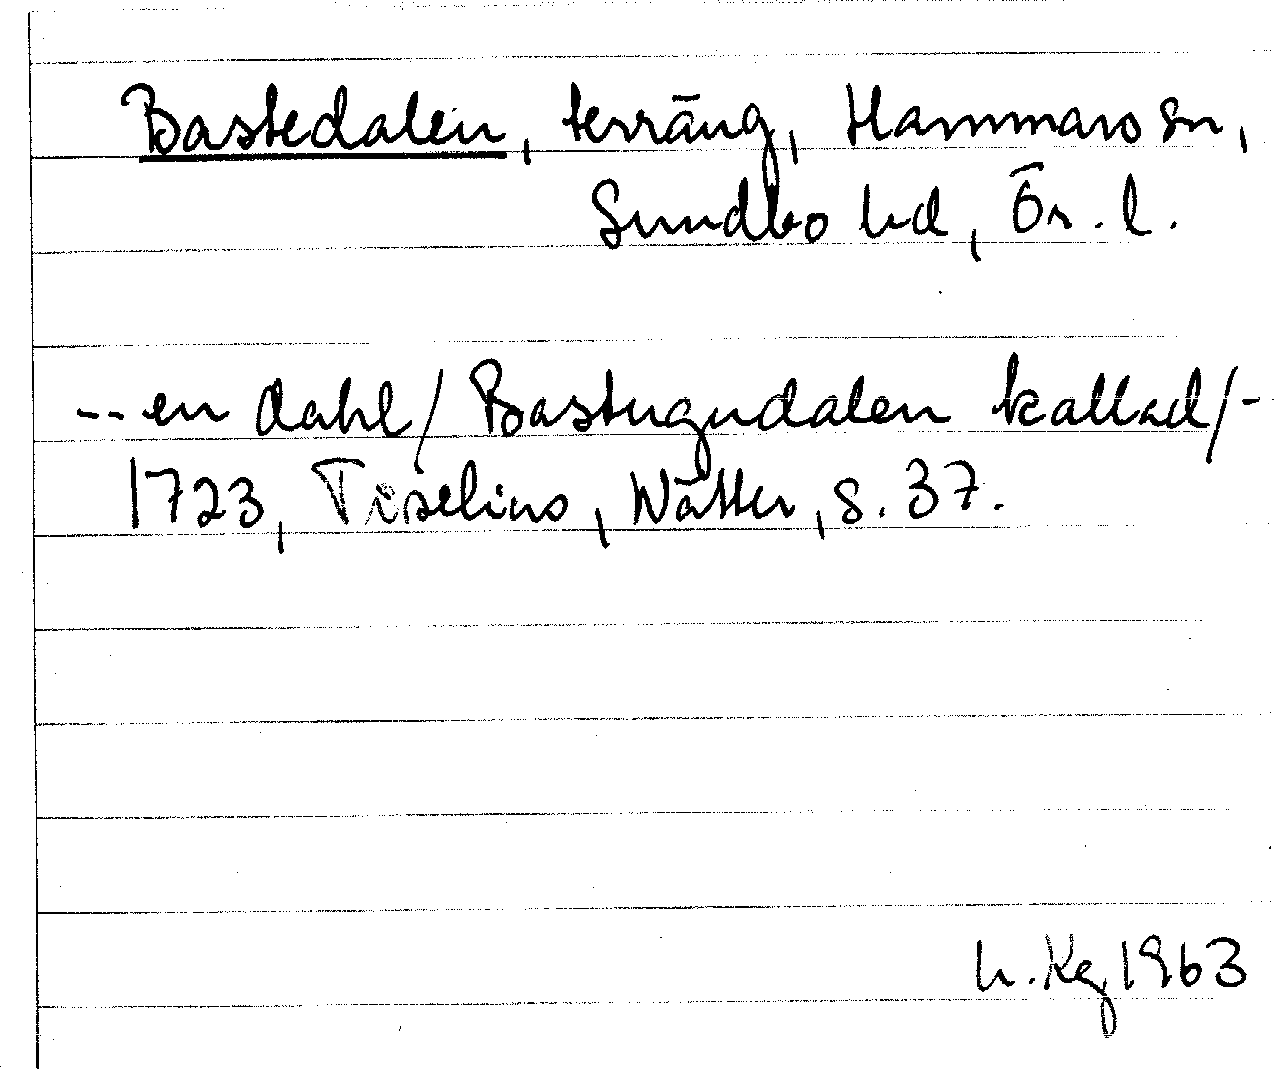 Bastedalen, terräng, Hammars sn,
Sundbo hd, Ör. l.
-- en dahl / Bastugudalen kallad / -
1723, Tiselius, Wätter, s. 37.
h. Kg 1963